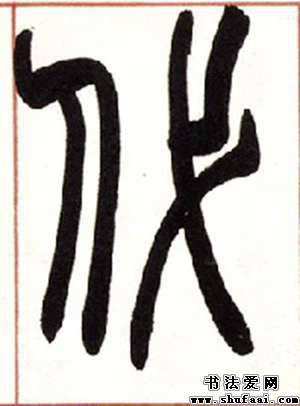 伏
书法爱网
www.shufaai.com